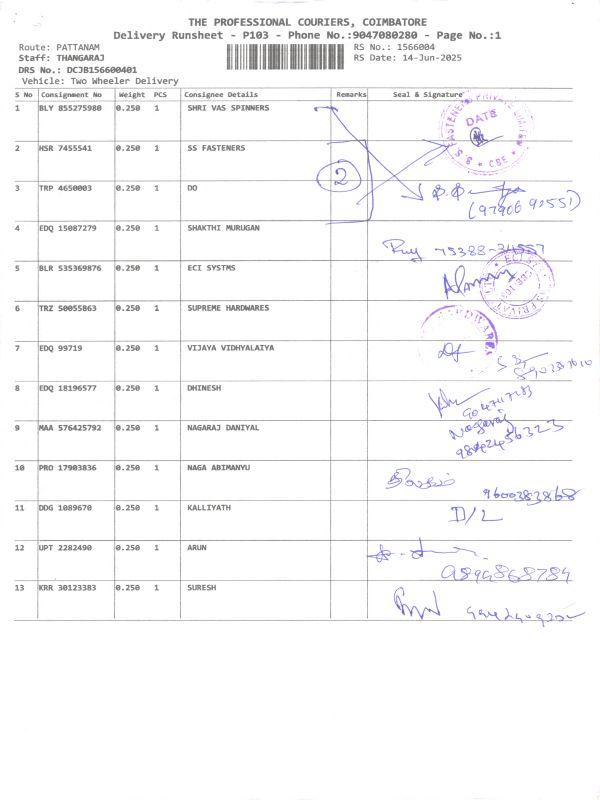 THE PROFESSIONAL COURIERS, COIMBATORE
Delivery Runsheet - P103 - Phone No.:9047080280 - Page No.:1
Route: PATTANAM RS No.: 1566004
Staff: THANGARAJ RS Date: 14-Jun-2025
DRS No.: DCJB156600401
Vehicle: Two Wheeler Delivery
S No Consignment No Weight PCS Consignee Details Remarks Seal & Signature
1 BLY 855275980 0.250 1 SHRI VAS SPINNERS
FASTENERS PRIVATE LIMITED
DATE
S S * CBE *
2 HSR 7455541 0.250 1 SS FASTENERS
2
3 TRP 4650003 0.250 1 DO
(97906 92551)
4 EDQ 15087279 0.250 1 SHAKTHI MURUGAN
75388-34557
5 BLR 535369876 0.250 1 ECI SYSTMS
ECI
6 TRZ 50055863 0.250 1 SUPREME HARDWARES
7 EDQ 99719 0.250 1 VIJAYA VIDHYALAIYA
8 EDQ 18196577 0.250 1 DHINESH
9047117283
9 MAA 576425792 0.250 1 NAGARAJ DANIYAL
Nagaraj
9842456323
10 PRO 17903836 0.250 1 NAGA ABIMANYU
9600383868
11 DDG 1089670 0.250 1 KALLIYATH
D/L
12 UPT 2282490 0.250 1 ARUN
9894868784
13 KRR 30123383 0.250 1 SURESH